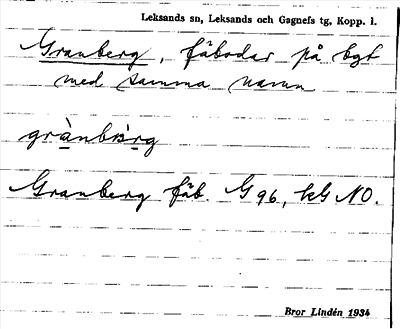 Leksands sn, Leksands och Gagnefs tg, Kopp. l.
Granberg, fäbodar på bgt
med samma namn
Granberg fäb. G 96, kG NO.
Bror Lindén 1934